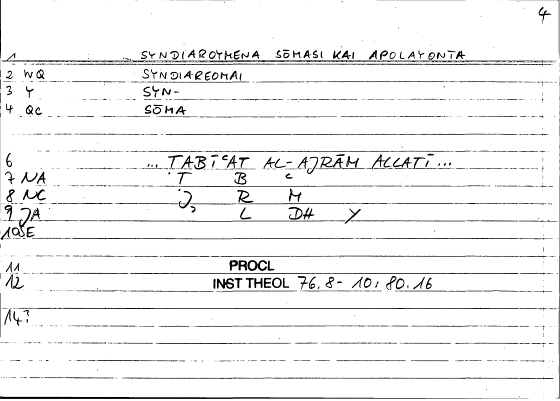 4
1 SYNDIAROYMENA SŌMASI KAI APOLAYONTA
2 WQ SYNDIAREOMAI
3 Y SYN-
4 QC SŌMA
6 ... TABĪʿAT AL-AJRĀM ALLATĪ ...
7 NA T B ʿ
8 NC J R M
9 JA L DH Y
10 SE
11 PROCL
12 INST THEOL 76.8-10; 80.16
14?